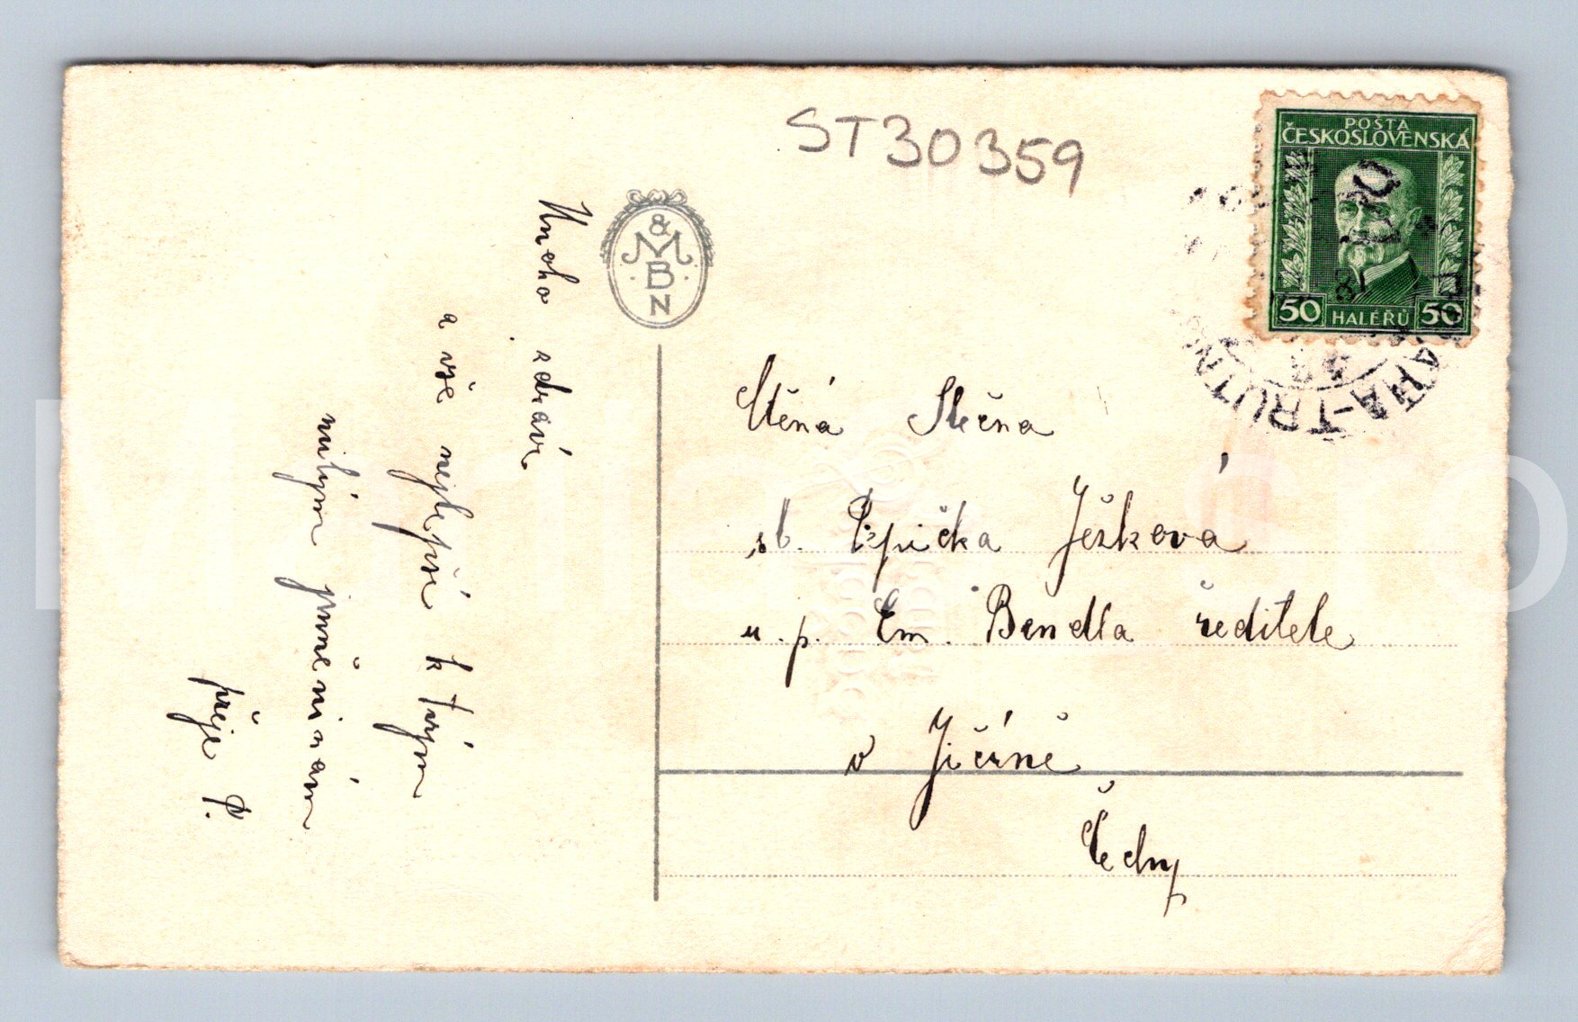 ST30359
POSTA
ČESKOSLOVENSKÁ
50 HALÉŘŮ 50
PRAHA-TRUTNOV
& M B N
Mnoho zdraví
a vše nejlepší k tvým
milým jmeninám
přeje P.
Ctěná Slečna
sl. Pepička Ježková
u. p. Em. Bendla ředitele
v Jičíně
Čechy